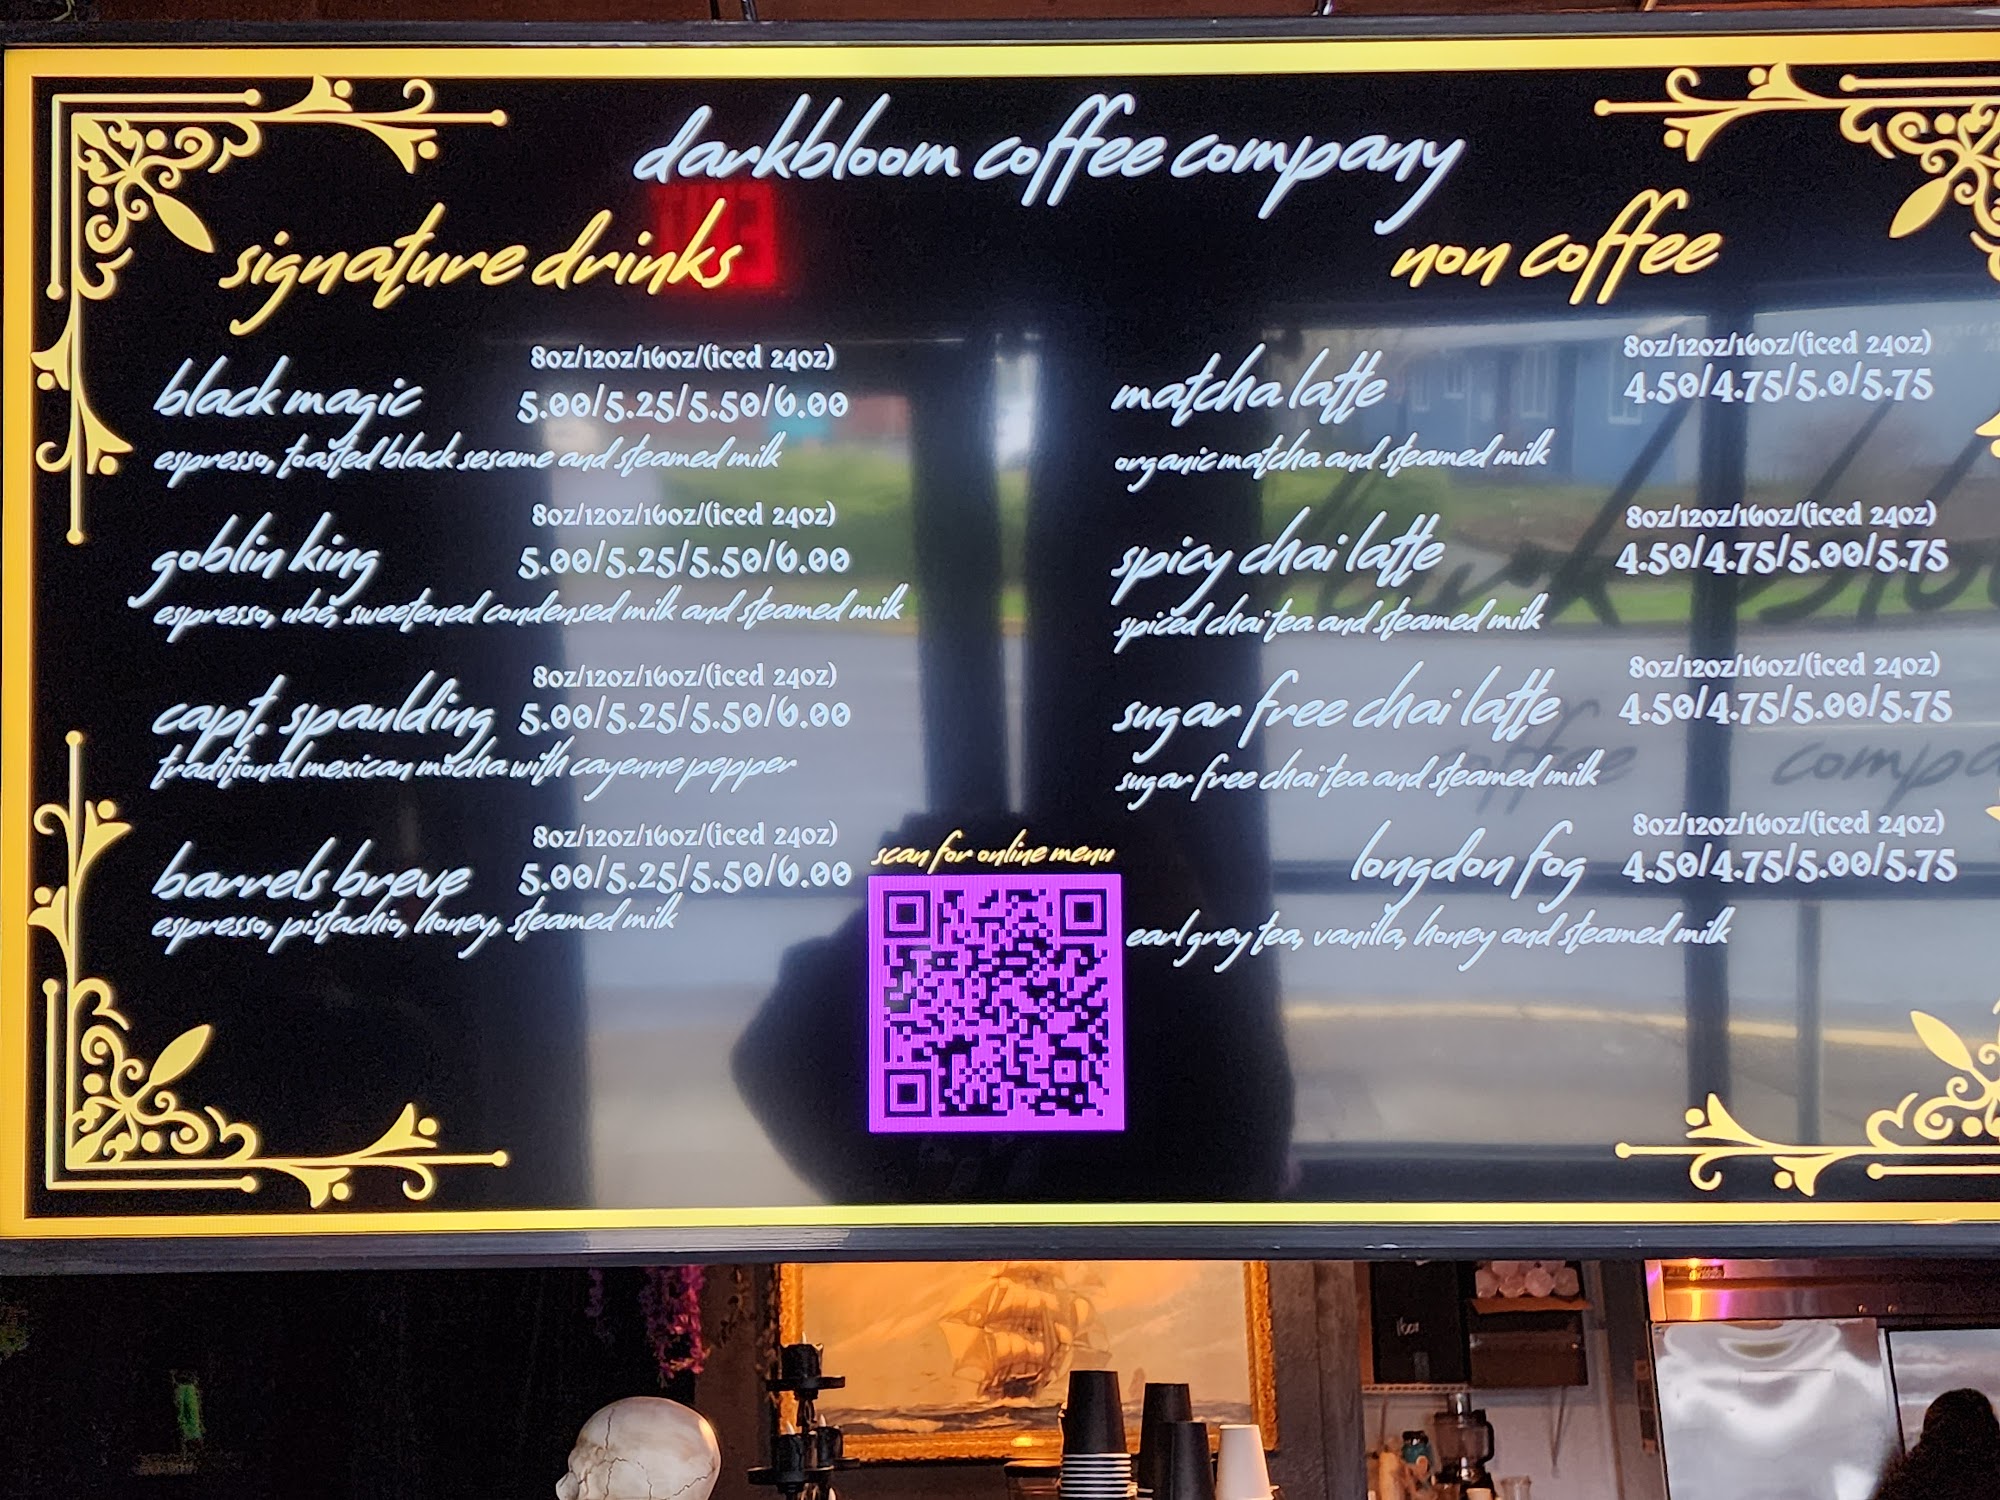 darkbloom coffee company
signature drinks
black magic
8oz/12oz/16oz/(iced 24oz)
5.00/5.25/5.50/6.00
espresso, toasted black sesame and steamed milk
goblin king
8oz/12oz/16oz/(iced 24oz)
5.00/5.25/5.50/6.00
espresso, ube, sweetened condensed milk and steamed milk
capt. spaulding
8oz/12oz/16oz/(iced 24oz)
5.00/5.25/5.50/6.00
traditional mexican mocha with cayenne pepper
barrels breve
8oz/12oz/16oz/(iced 24oz)
5.00/5.25/5.50/6.00
espresso, pistachio, honey, steamed milk
non coffee
matcha latte
8oz/12oz/16oz/(iced 24oz)
4.50/4.75/5.0/5.75
organic matcha and steamed milk
spicy chai latte
8oz/12oz/16oz/(iced 24oz)
4.50/4.75/5.00/5.75
spiced chai tea and steamed milk
sugar free chai latte
8oz/12oz/16oz/(iced 24oz)
4.50/4.75/5.00/5.75
sugar free chai tea and steamed milk
longdon fog
8oz/12oz/16oz/(iced 24oz)
4.50/4.75/5.00/5.75
earl grey tea, vanilla, honey and steamed milk
scan for online menu
EXIT
coffee compa